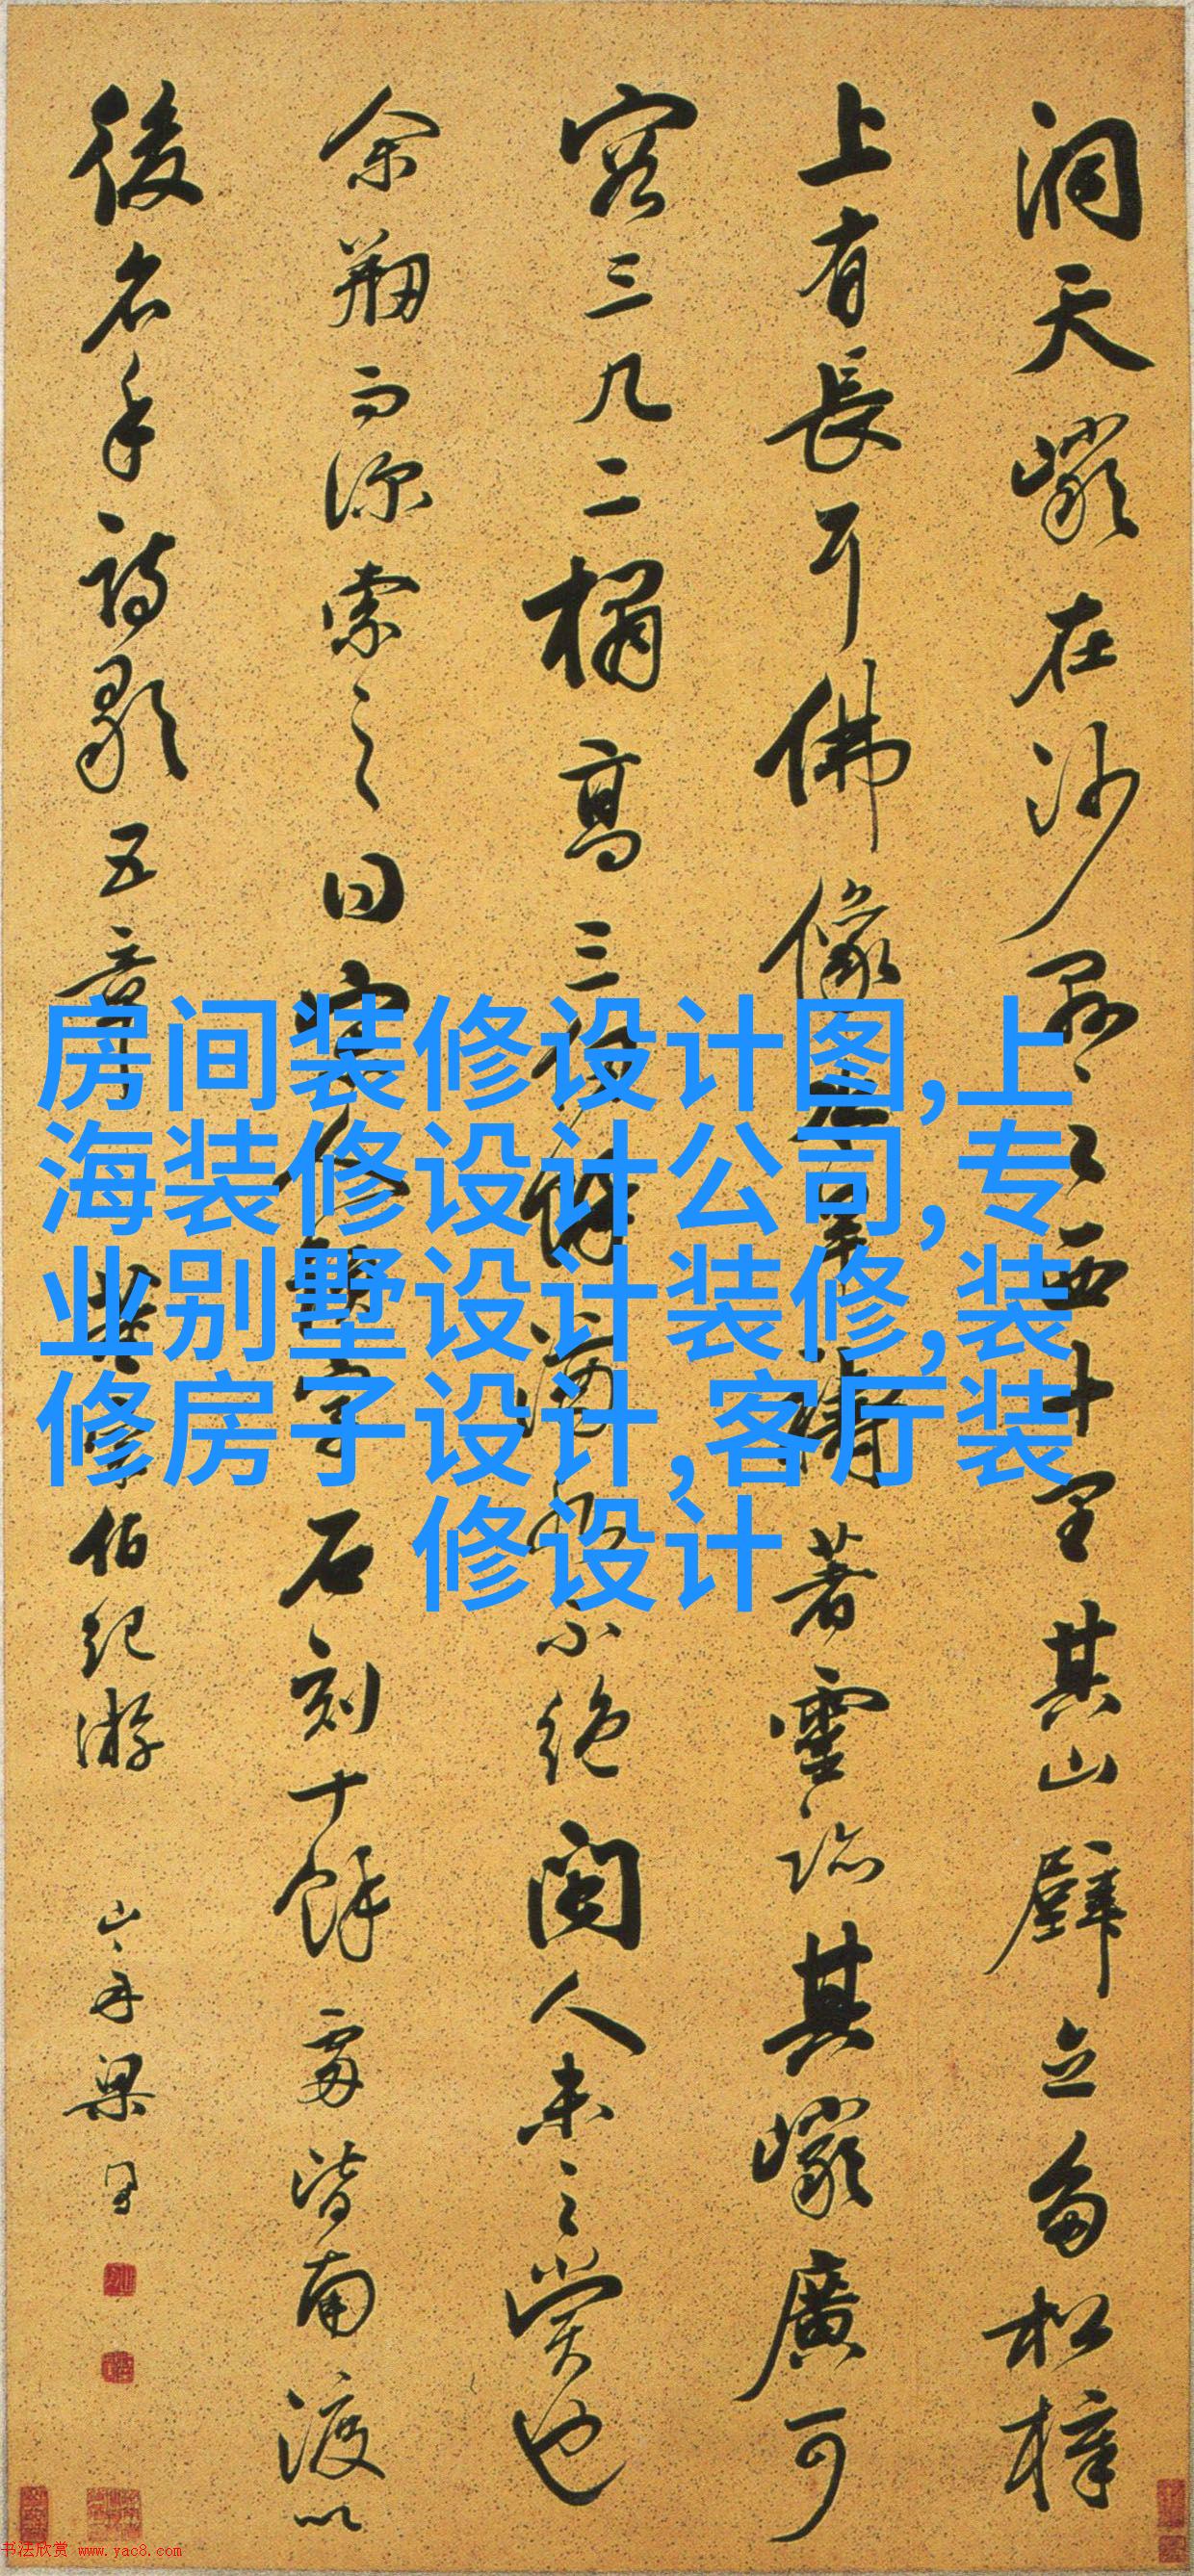 洞天巖在沙縣之西十里其山壁立多松樟
上有長耳佛像水旱禱著靈跡其巖廣可
容三几二榻高三仞餘滴水不絕閩人未之賞也
余搠而深索之曰宋人題字石刻十餘處皆南渡以
後名手詩歌五章
伯紀游
山舟梁同書
房间装修设计图,上
海装修设计公司,专
业别墅设计装修,装
修房子设计,客厅装
修设计
书法欣赏 www.yac8.com